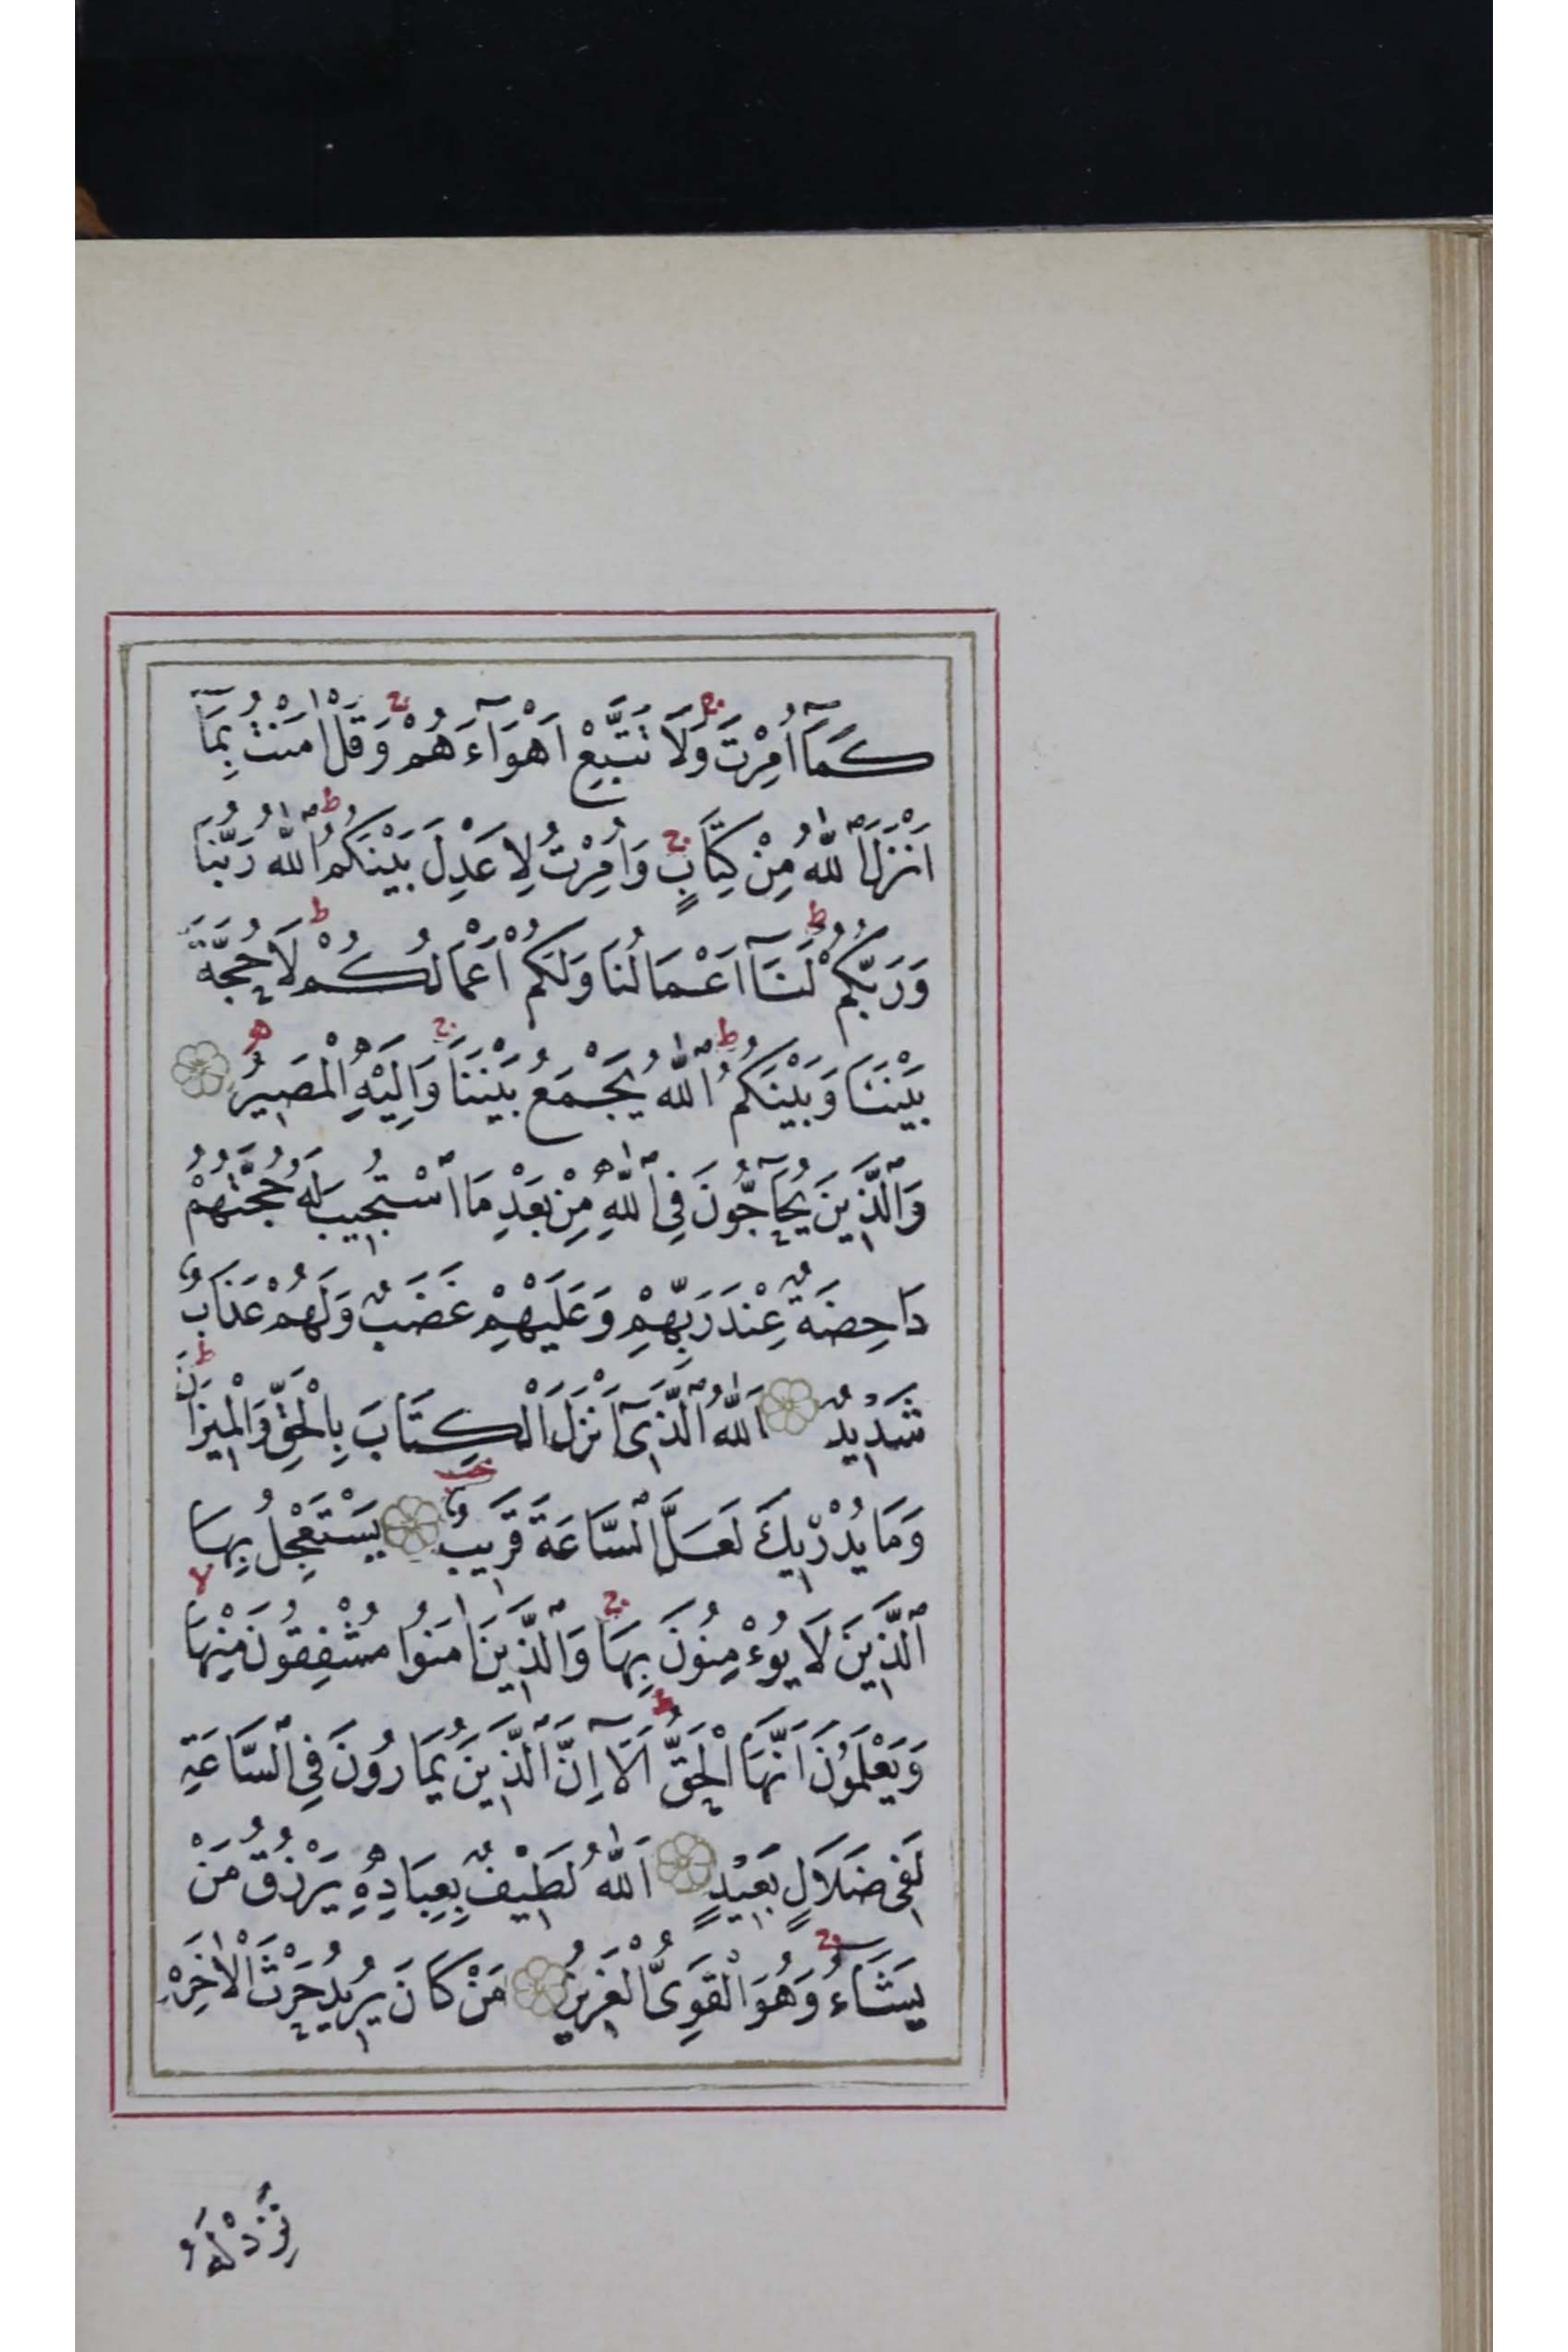 كَمَآ اُمِرْتَ ۚ وَلَا تَتَّبِعْ اَهْوَآءَهُمْ ۚ وَقُلْ اٰمَنْتُ بِمَآ
اَنْزَلَ ٱللّٰهُ مِنْ كِتَابٍ ۚ وَاُمِرْتُ لِاَعْدِلَ بَيْنَكُمُ ؕ ٱللّٰهُ رَبُّنَا
وَرَبُّكُمْ ؕ لَنَآ اَعْمَالُنَا وَلَكُمْ اَعْمَالُكُمْ ؕ لَا حُجَّةَ
بَيْنَنَا وَبَيْنَكُمُ ؕ ٱللّٰهُ يَجْمَعُ بَيْنَنَا ۚ وَاِلَيْهِ الْمَصِيرُ
وَٱلَّذِينَ يُحَآجُّونَ فِى ٱللّٰهِ مِنْ بَعْدِ مَا ٱسْتُجِيبَ لَهُ حُجَّتُهُمْ
دَاحِضَةٌ عِنْدَ رَبِّهِمْ وَعَلَيْهِمْ غَضَبٌ وَلَهُمْ عَذَابٌ
شَدِيدٌ اَللّٰهُ ٱلَّذِىٓ اَنْزَلَ الْكِتَابَ بِالْحَقِّ وَالْمِيزَانَ ؕ
وَمَا يُدْرِيكَ لَعَلَّ ٱلسَّاعَةَ قَرِيبٌ يَسْتَعْجِلُ بِهَا
ٱلَّذِينَ لَا يُوءْمِنُونَ بِهَا ۚ وَٱلَّذِينَ اٰمَنُوا مُشْفِقُونَ مِنْهَا ۙ
وَيَعْلَمُونَ اَنَّهَا الْحَقُّ ؕ اَلَآ اِنَّ ٱلَّذِينَ يُمَارُونَ فِى ٱلسَّاعَةِ
لَفِى ضَلَالٍ بَعِيْدٍ اَللّٰهُ لَطِيْفٌ بِعِبَادِهِ يَرْزُقُ مَنْ
يَشَاءُ ۚ وَهُوَ الْقَوِىُّ الْعَزِيزُ مَنْ كَانَ يُرِيدُ حَرْثَ الْاٰخِرَهِ
نَزِدْ لَهُ